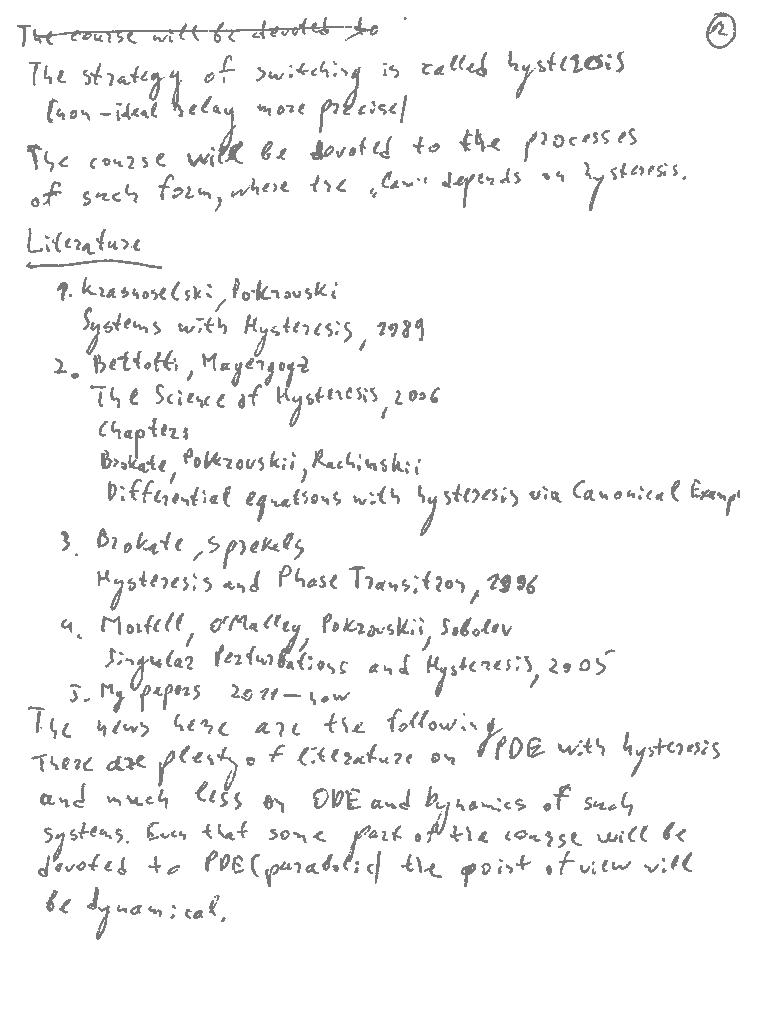 The course will be devoted to
2
The strategy of switching is called hysteresis
(non-ideal relay more precise)
The course will be devoted to the processes
of such form, where the "law" depends on hysteresis.
Literature
1. Krasnoselski, Pokrovski
Systems with Hysteresis, 1989
2. Bettotti, Mayergoyz
The Science of Hysteresis, 2006
Chapters
Brokate, Pokrovskii, Rachinskii
Differential equations with hysteresis via Canonical Exampl
3. Brokate, Sprekels
Hysteresis and Phase Transition, 1996
4. Mortell, O'Malley, Pokrovskii, Sobolev
Singular Perturbations and Hysteresis, 2005
5. My papers 2011 - now
The news here are the following
There are plenty of literature on PDE with hysteresis
and much less on ODE and Dynamics of such
systems. Even that some part of the course will be
devoted to PDE (parabolic) the point of view will
be dynamical.